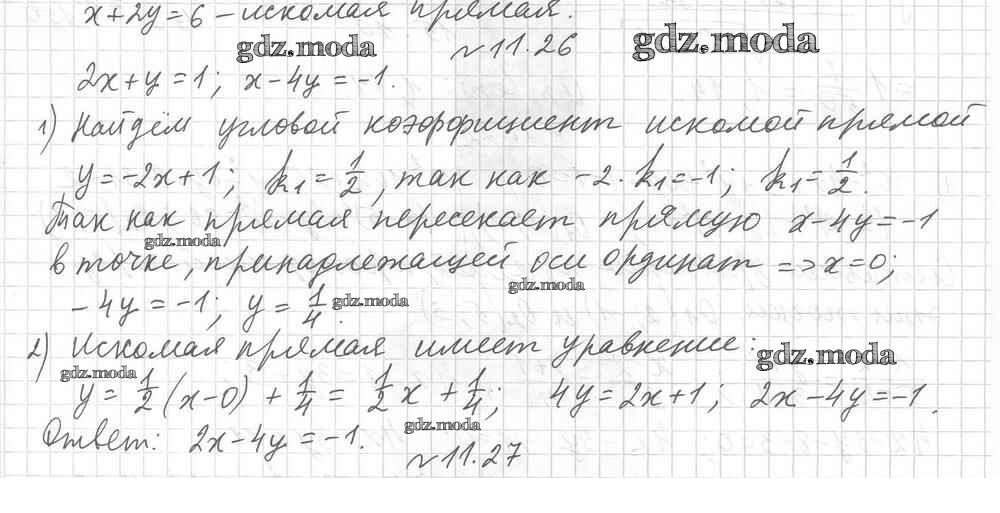 x+2y=6 – искомая прямая.
gdz.moda № 11.26 gdz.moda
2x+y=1; x-4y=-1.
1) Найдём угловой коэффициент искомой прямой
y=-2x+1; k₁=1/2, так как -2·k₁=-1; k₁=1/2.
Так как прямая пересекает прямую x-4y=-1
gdz.moda
в точке, принадлежащей оси ординат => x=0;
gdz.moda
-4y=-1; y=1/4. gdz.moda
2) Искомая прямая имеет уравнение:
gdz.moda gdz.moda
y=1/2(x-0)+1/4=1/2x+1/4; 4y=2x+1; 2x-4y=-1.
gdz.moda
Ответ: 2x-4y=-1.
№ 11.27